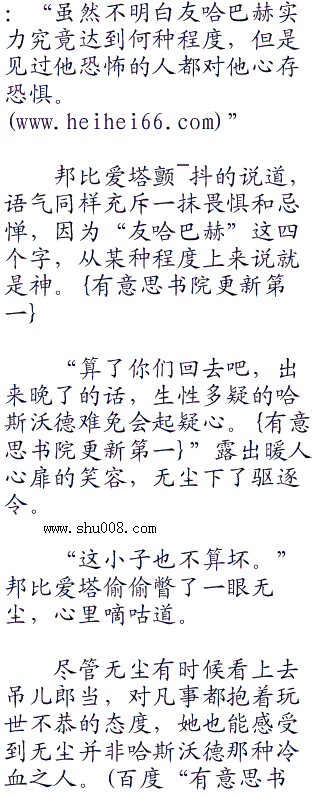 ：“虽然不明白友哈巴赫实
力究竟达到何种程度，但是
见过他恐怖的人都对他心存
恐惧。
(www.heihei66.com)”
邦比爱塔颤¯抖的说道，
语气同样充斥一抹畏惧和忌
惮，因为“友哈巴赫”这四
个字，从某种程度上来说就
是神。{有意思书院更新第
一}
“算了你们回去吧，出
来晚了的话，生性多疑的哈
斯沃德难免会起疑心。{有意
思书院更新第一}”露出暖人
心扉的笑容，无尘下了驱逐
令。
www.shu008.com
“这小子也不算坏。”
邦比爱塔偷偷瞥了一眼无
尘，心里嘀咕道。
尽管无尘有时候看上去
吊儿郎当，对凡事都抱着玩
世不恭的态度，她也能感受
到无尘并非哈斯沃德那种冷
血之人。(百度“有意思书